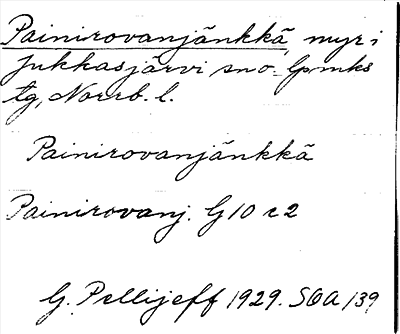 Painirovanjänkkä myr i
Jukkasjärvi sno. Lpmks
tg, Norrb. l.
Painirovanjänkkä
Painirovanj. G 10 c 2
G. Pellijeff 1929. SOA 139